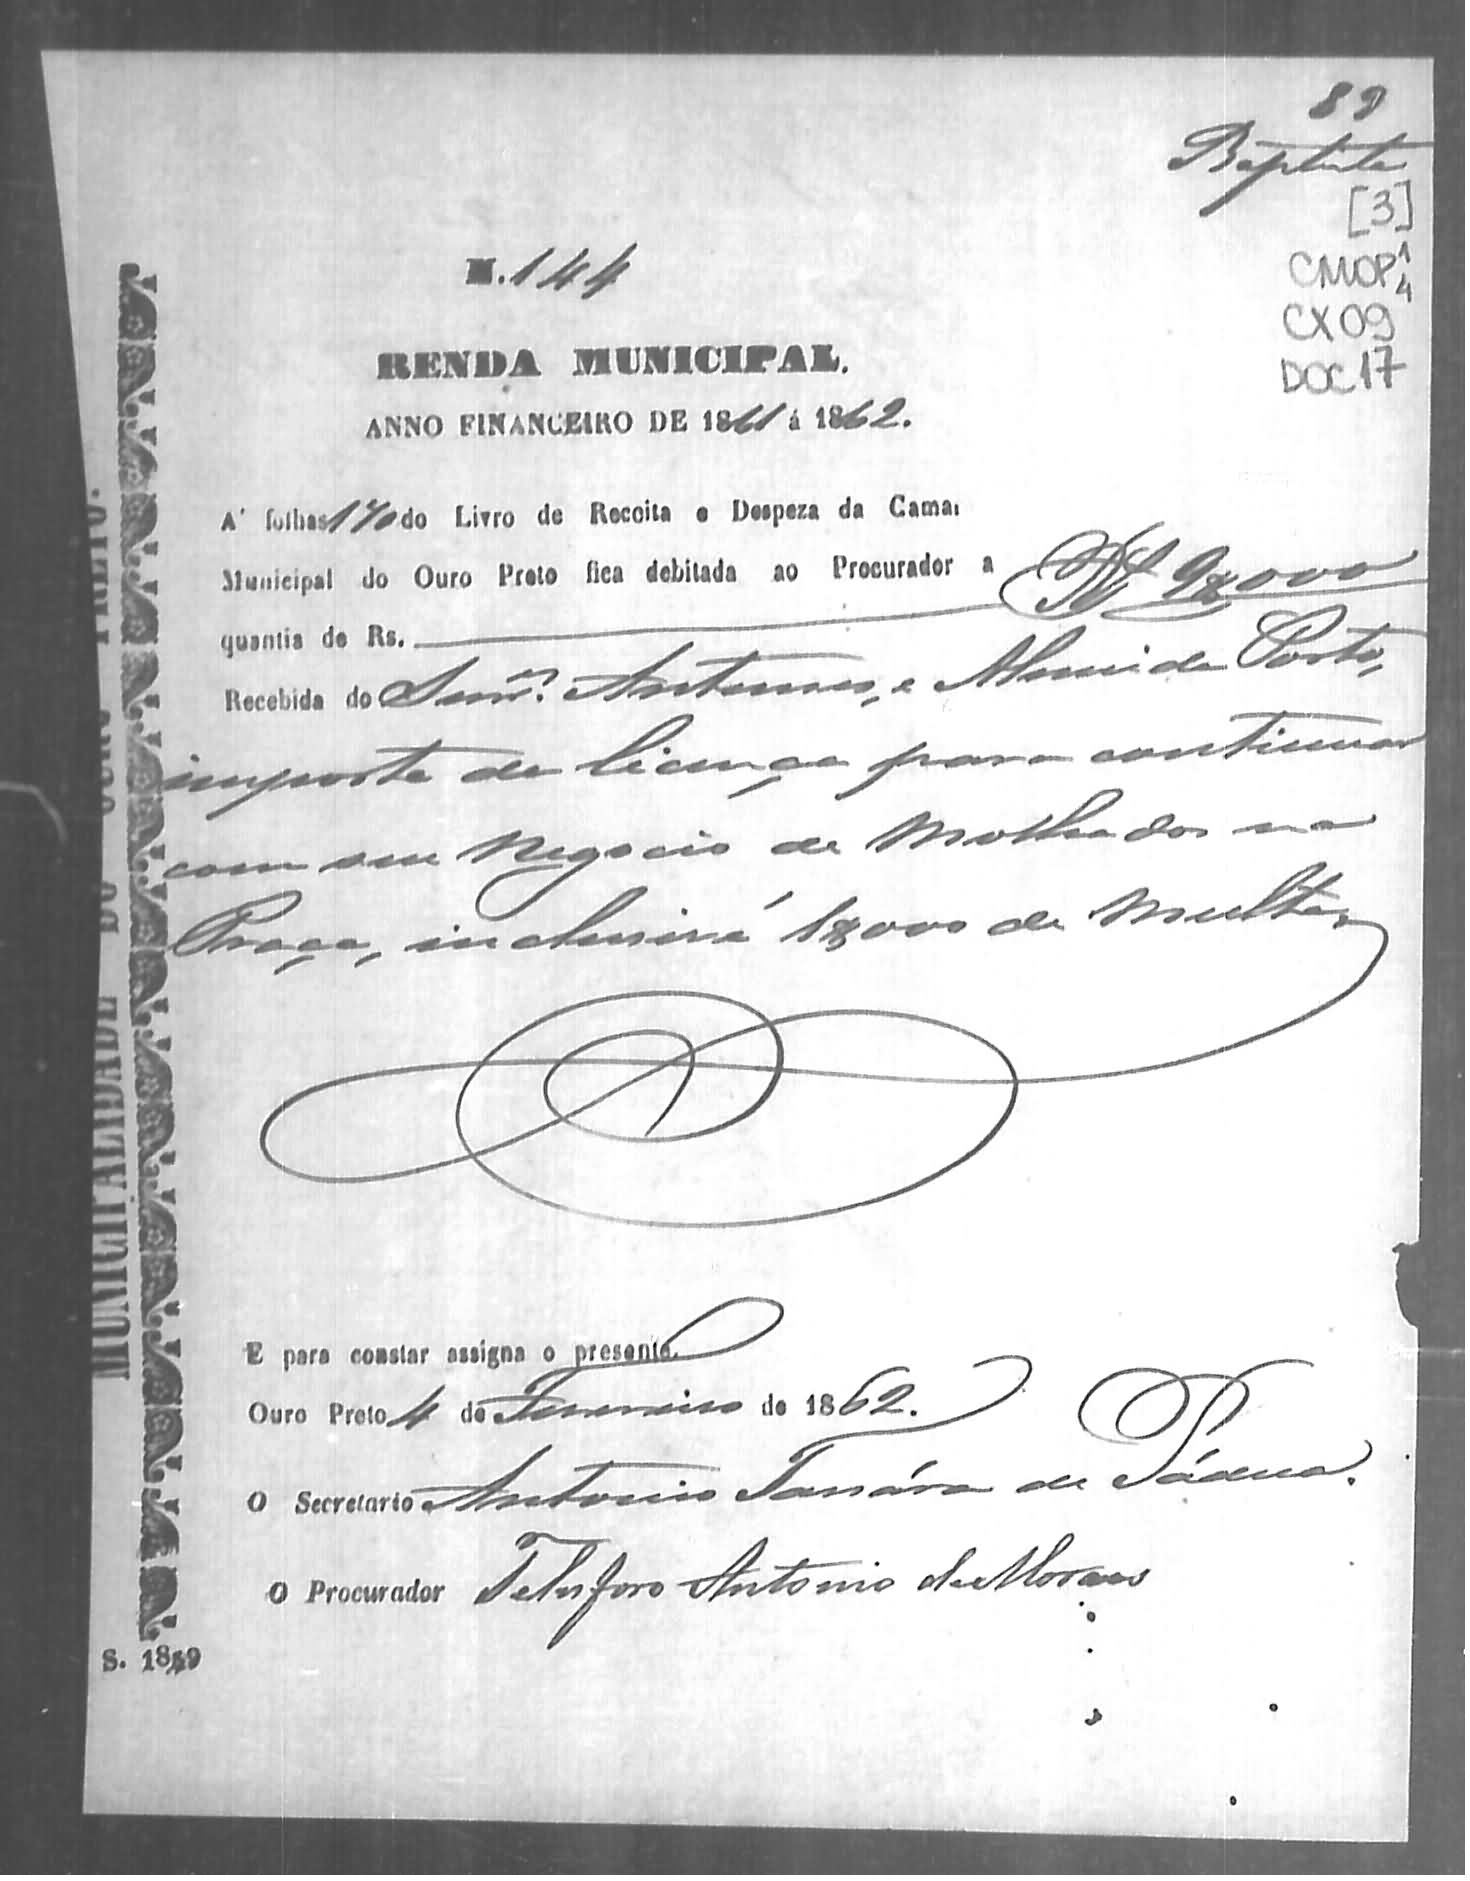 89
Baptista
[3]
CMOP 1/4
CX09
DOC17
N. 144
RENDA MUNICIPAL.
ANNO FINANCEIRO DE 1861 á 1862.
A' folhas 170 do Livro de Receita e Despeza da Cama:
Municipal do Ouro Preto fica debitada ao Procurador a
quantia de Rs. 9$000
Recebida do Antunes, e Almeida Porto,
importe de licença para continuar
com seu Negocio de Molhados na
Praça, inclusivé 1$000 de Multa
E para constar assigna o presente.
Ouro Preto 4 de Fevereiro de 1862.
O Secretario Antonio de Pádua.
O Procurador Telesforo Antonio de Moraes
MUNICIPALIDADE DO OURO PRETO.
S. 1859